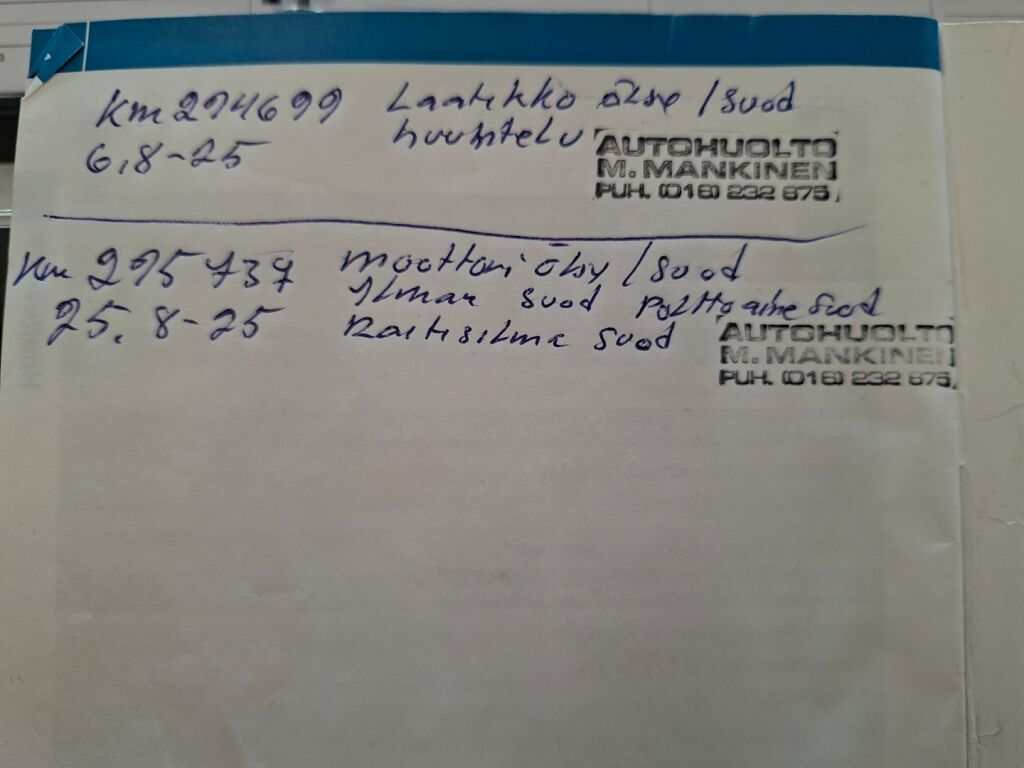 Km 274699 Laatikko öljy / Suod
6.8-25 huuhtelu
AUTOHUOLTO
M. MANKINEN
PUH. (016) 232 675
Km 275737 Moottori öljy / Suod
25.8-25 Ilman Suod Polttoaine Suod
Raitisilma Suod
AUTOHUOLTO
M. MANKINEN
PUH. (016) 232 675